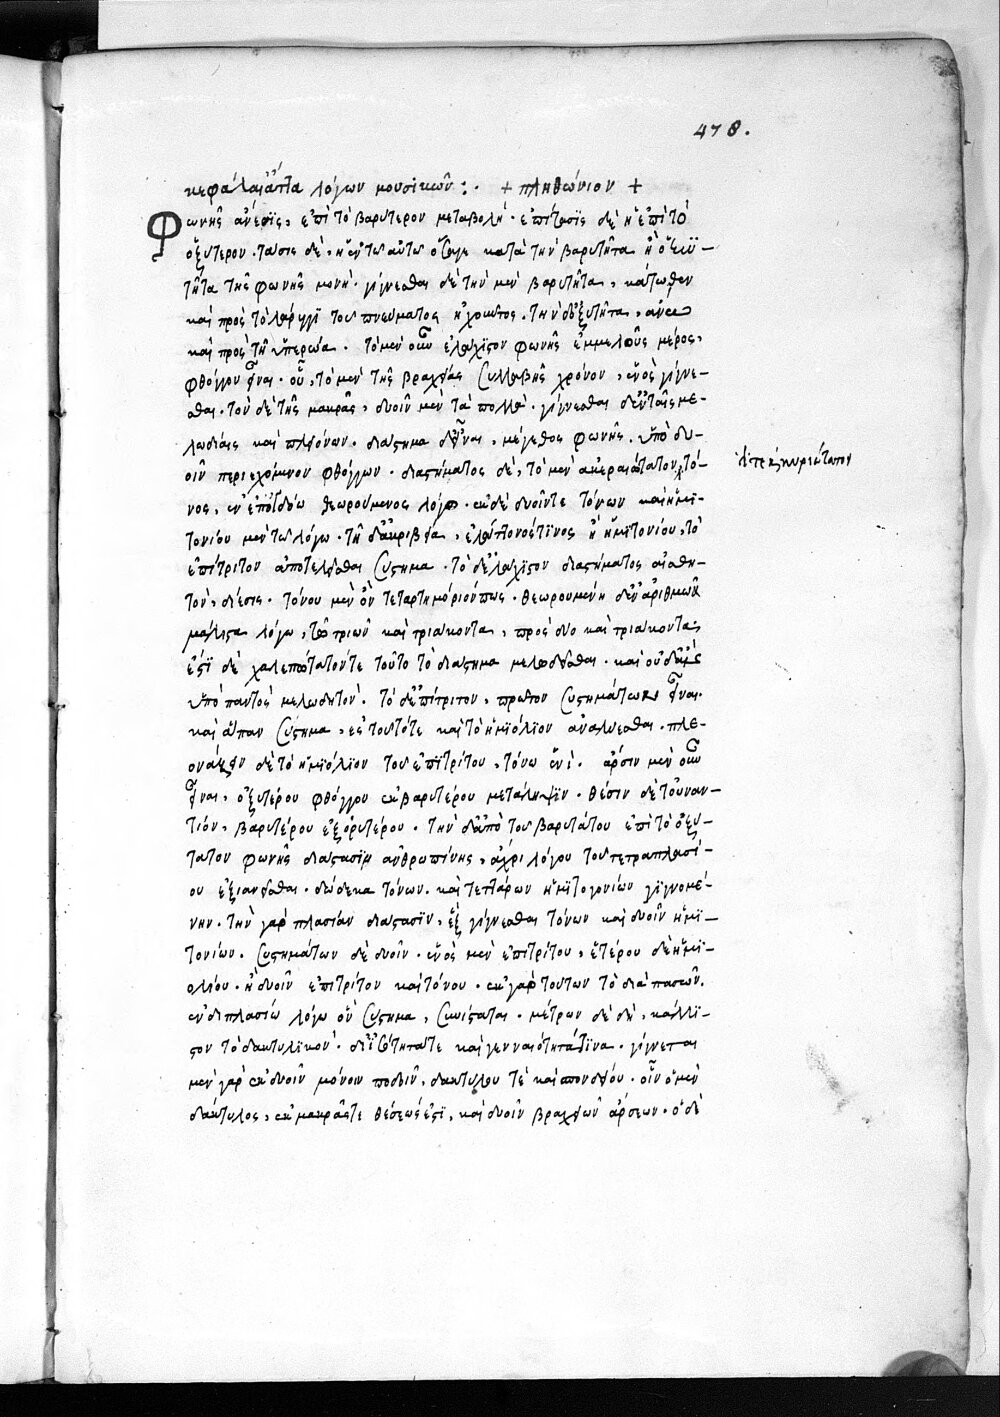 478.
κεφάλαι' ἄττα λόγων μουσικῶν :· + πληθώνιον +
Φωνῆς ἄνεσις, ἐπὶ τὸ βαρύτερον μεταβολή· ἐπίτασις δὲ ἡ ἐπὶ τὸ
ὀξύτερον· τάσις δὲ, ἡ ἐν τῶ αὐτῶ κατὰ τὴν βαρυτῆτα ἢ ὀξυ-
τῆτα τῆς φωνῆς μονή· γίγνεσθαι δὲ τὴν μὲν βαρυτῆτα, κάτωθεν
καὶ πρὸς τὸ λάρυγγι τοῦ πνεύματος ἠχοῦντος· τὴν δ' ὀξυτῆτα, ἄνω
καὶ πρὸς τῆ ὑπερώα· τὸ μὲν οὖν ἐλάχιστον φωνῆς ἐμμελοῦς μέρος,
φθόγγον εἶναι· οὗ, τὸ μὲν τῆς βραχείας συλλαβῆς χρόνου, ἑνὸς γίγνε-
σθαι· τὸν δὲ τῆς μακρᾶς, δυοῖν μὲν τὰ πολλά· γίγνεσθαι δ' ἐν ταῖς με-
λωδίαις καὶ πλειόνων· διάστημα δ' εἶναι, μέγεθος φωνῆς, ὑπὸ δυ-
οῖν περιεχόμενον φθόγγων· διαστήματος δὲ, τὸ μὲν ἀκεραιότατον, τό-
νος, ἐν ἐπογδόω θεωρούμενος λόγω· ἐκ δὲ δυοῖν τε τόνων καὶ ἡμι-
τονίου μὲν τῶ λόγω· τῆ δ' ἀκριβεία, ἐλάττονος τινος ἢ ἡμιτονίου, τὸ
ἐπίτριτον ἀποτελεῖσθαι σύστημα· τὸ δ' ἐλάχιστον διαστήματος αἰσθη-
τὸν, δίεσις· τόνου μὲν ὂν τεταρτημόριόν πως· θεωρουμένη δ' ἐν ἀριθμῶν
μάλιστα λόγω, τῶ τριῶν καὶ τριάκοντα, πρὸς δύο καὶ τριάκοντα·
ἔστι δὲ χαλεπώτατόν τε τοῦτο τὸ διάστημα μελωδεῖσθαι· καὶ
ὑπὸ παντὸς μελωδητόν· τὸ δ' ἐπίτριτον, πρῶτον συστημάτων εἶναι·
καὶ ἅπαν σύστημα, ἐς τοῦτό τε καὶ τὸ ἡμιόλιον ἀναλύεσθαι· πλε-
ονάζειν δὲ τὸ ἡμιόλιον τοῦ ἐπιτρίτου, τόνω ἑνί· ἄρσιν μὲν οὖν
εἶναι, ὀξυτέρου φθόγγου ἐκ βαρυτέρου μετάληψιν· θέσιν δὲ τοὐναν-
τίον, βαρυτέρου ἐξ ὀξυτέρου· τὴν δ' ἀπὸ τοῦ βαρυτάτου ἐπὶ τὸ ὀξύ-
τατον φωνῆς διάστασιν ἀνθρωπίνης, ἄχρι λόγου τοῦ τετραπλασί-
ου ἐξιανεῖσθαι· δώδεκα τόνων· καὶ τεττάρων ἡμιτονίων γιγνομέ-
νην· τὴν γὰρ πλασίαν διάστασιν, ἓξ γίγνεσθαι τόνων καὶ δυοῖν ἡμι-
τονίων· συστημάτων δὲ δυοῖν· ἑνὸς μὲν ἐπιτρίτου, ἑτέρου δὲ ἡμι-
ολίου· ἢ δυοῖν ἐπιτρίτοιν καὶ τόνου· ἐκ γὰρ τούτων τὸ διὰ πασῶν,
ἐν διπλασίω λόγω ὂν σύστημα, συνίσταται· μέτρων δὲ δὴ, κάλλι-
στον τὸ δακτυλικόν· δι' ἰσότητά τε καὶ γενναιότητά τινα· γίγνεται
μὲν γὰρ ἐκ δυοῖν μόνοιν ποδοῖν, δακτύλου τὲ καὶ σπονδείου· οἷν ὁ μὲν
δάκτυλος, ἐκ μακρᾶς τε θέσεως ἐστι, καὶ δυοῖν βραχειῶν ἄρσεων· ὁ δὲ